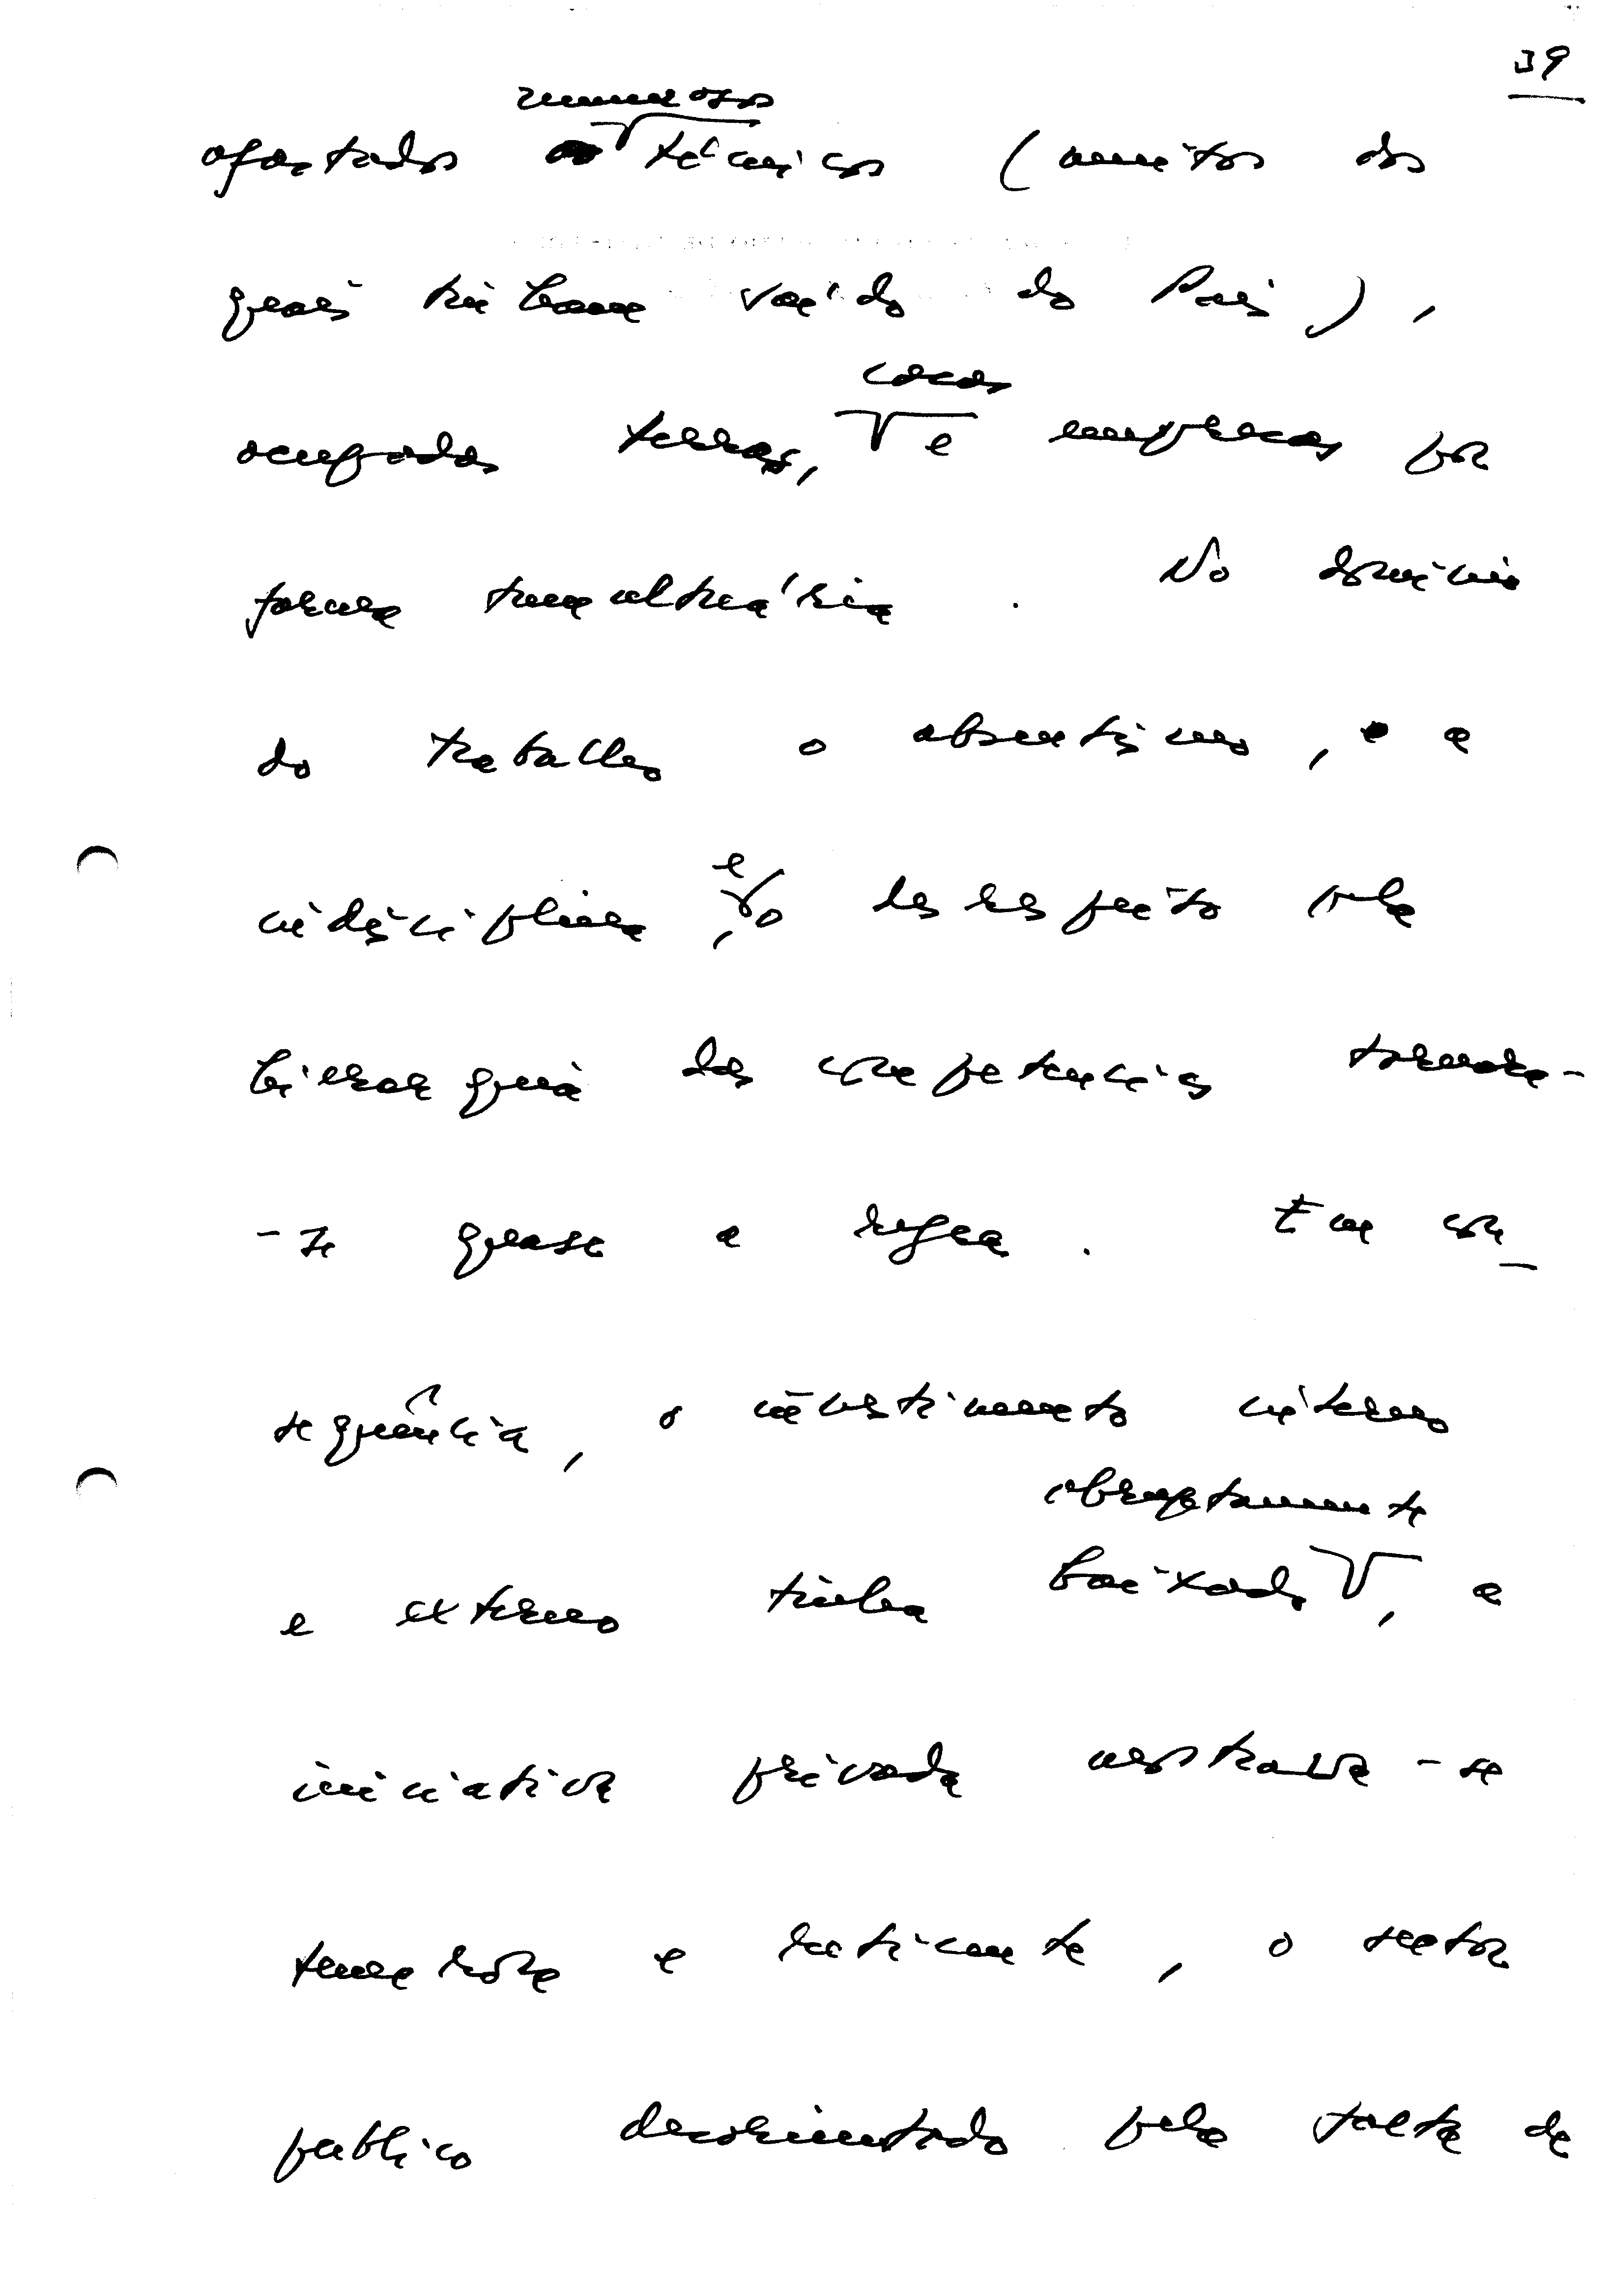 39
numerosos
afastados técnicos (muitos dos
quais tinham saído do País),
casas
ocupadas terras, e empresas por
forma tumultuária. No domínio
do trabalho o absentismo, a
e
indisciplina, o desrespeito pela
hierarquia das competências tornara-
-se quase a regra. Em con_
sequência, o investimento interno
abruptamente
e externo tinha baixado, a
iniciativa privada mostrava-se
temerosa e reticente, o sector
público desorientado pela falta de